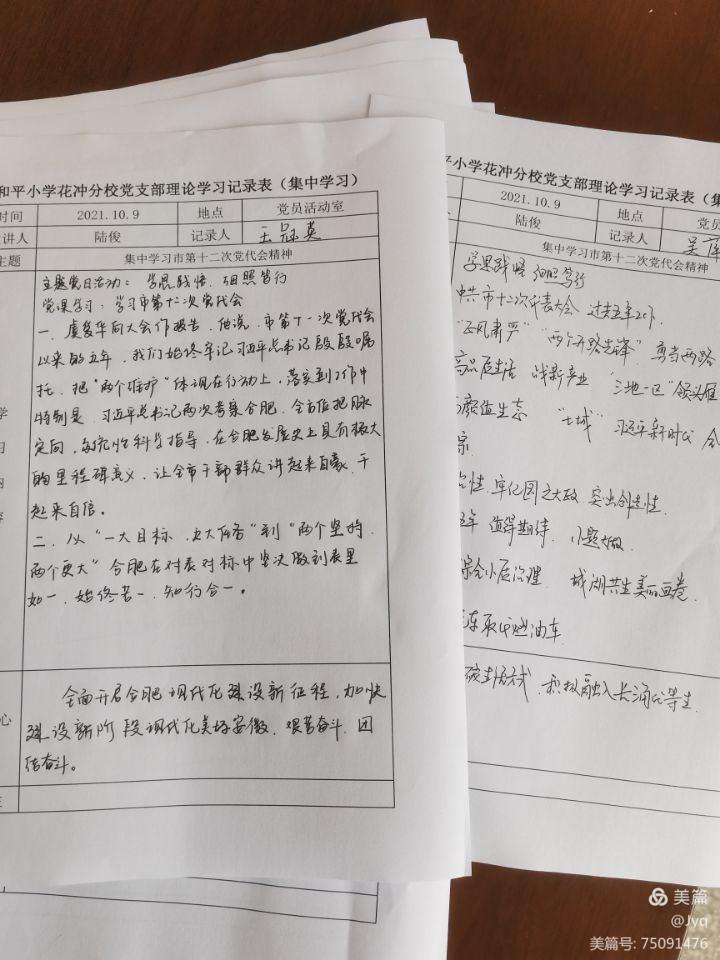 和平小学花冲分校党支部理论学习记录表（集中学习）
时间 2021.10.9 地点 党员活动室
主讲人 陆俊 记录人 王冠英
主题 集中学习市第十二次党代会精神
主题党日活动：学思践悟、细照笃行
党课学习：学习市第十二次党代会
一、虞爱华向大会作报告。他说，市第十一次党代会
以来的五年，我们始终牢记习近平总书记殷殷嘱
托，把“两个维护”体现在行动上，落实到工作中
特别是，习近平总书记两次考察合肥，全方位把脉
定向、科学指导，在合肥发展史上具有极大
的里程碑意义，让全市干部群众讲起来自豪、干
起来自信。
二、从“一大目标、五大任务”到“两个坚持、
两个更大”合肥在对表对标中坚决做到表里
如一、始终如一、知行合一。
学
习
内
容
全面开启合肥现代化建设新征程，加快
建设新阶段现代化美好安徽，艰苦奋斗、团
结奋斗。
心
平小学花冲分校党支部理论学习记录表（集
2021.10.9 地点 党员
陆俊 记录人 吴
集中学习市第十二次党代会精神
学思践悟 细照笃行
中共市十二次代表大会 过去五年工作
“正风肃严” “两个开路先锋” 勇当两路
高品质生活 战新产业 “三地一区” 领头雁
高颜值生态 习近平新时代
治性、牢亿国之大政 突出创造性
五年 值得期待 小题大做
综合小区治理 城湖共生美丽画卷
车取代燃油车
积极融入长三角
美篇
@Jyq
美篇号: 75091476